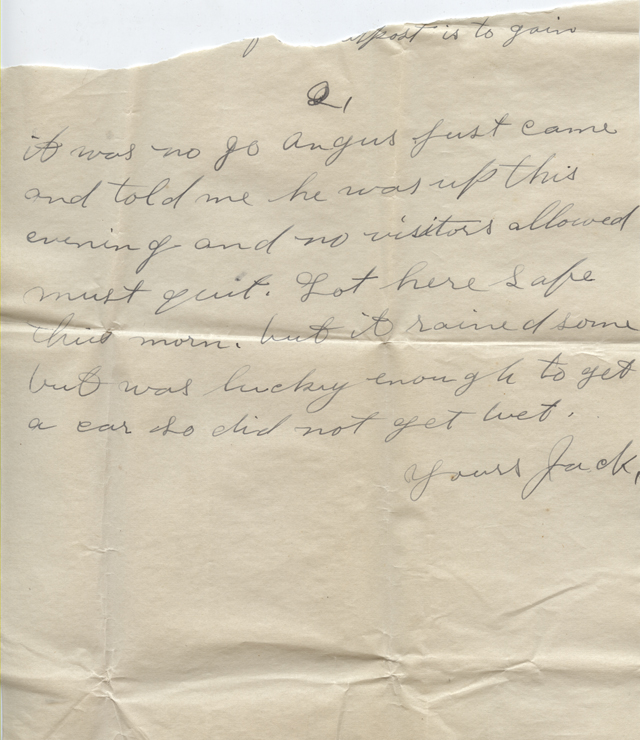 is to gain
2,
it was no go Angus just came
and told me he was up this
evening and no visitors allowed
must quit. Got here safe
this morn. but it rained some
but was lucky enough to get
a car so did not get wet.
Yours Jack,